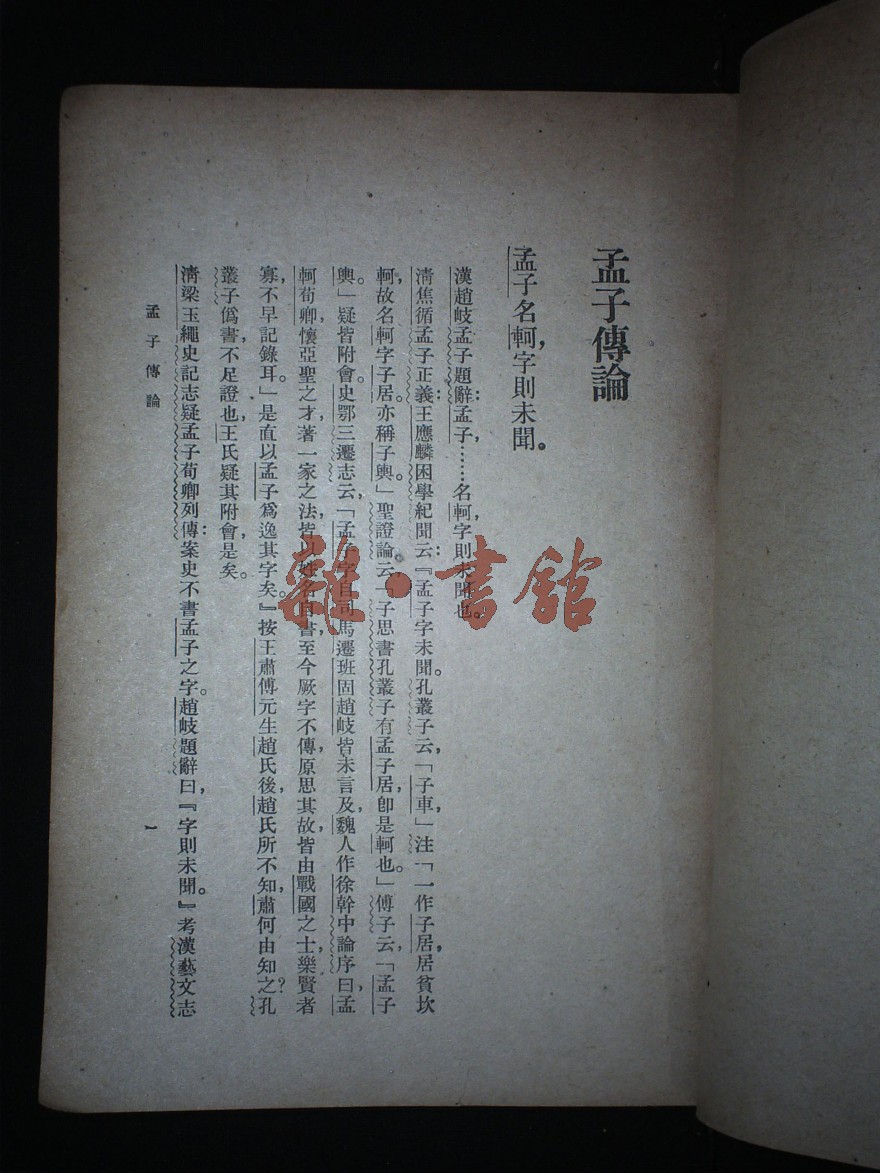 孟子傳論
孟子名軻，字則未聞。
漢趙岐孟子題辭：孟子，……名軻，字則未聞也。
清焦循孟子正義：王應麟困學紀聞云：『孟子字未聞。孔叢子云，「子車，」注「一作子居，居貧坎
軻，故名軻字子居。亦稱子輿。」聖證論云，「子思書孔叢子有孟子居，卽是軻也。」傅子云，「孟子
輿。」疑皆附會。史鄂三遷志云，「孟子字自司馬遷班固趙岐皆未言及，魏人作徐幹中論序曰，孟
軻荀卿懷亞聖之才，著一家之法，皆以姓名自書，至今厥字不傳，原思其故，皆由戰國之士，樂賢者
寡，不早記錄耳。」是直以孟子爲逸其字矣。』按王肅傅元生趙氏後，趙氏所不知，肅何由知之？孔
叢子僞書，不足證也，王氏疑其附會是矣。
清梁玉繩史記志疑孟子荀卿列傳：案史不書孟子之字。趙岐題辭曰，『字則未聞。』考漢藝文志
孟子傳論
一
雜·書館